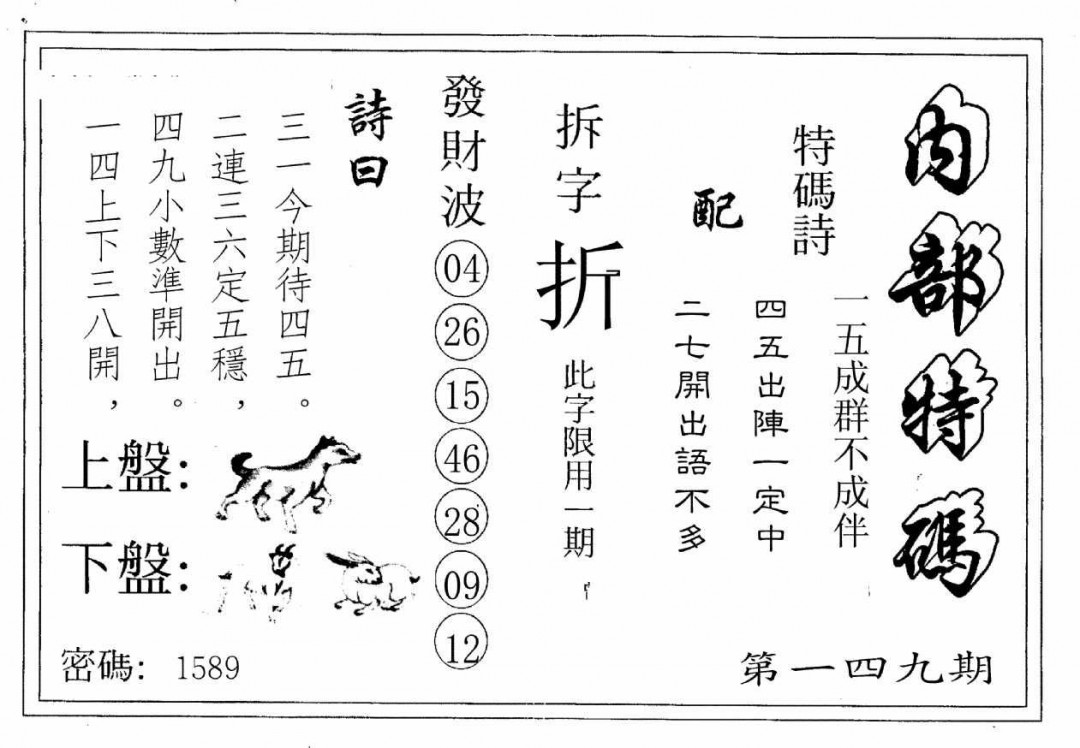 內部特碼
第一四九期
特碼詩
一五成群不成伴
四五出陣一定中
配
二七開出語不多
拆字
折
此字限用一期
發財波
04
26
15
46
28
09
12
詩曰
三一今期待四五。
二連三六定五穩，
四九小數準開出。
一四上下三八開，
上盤：
下盤：
密碼： 1589